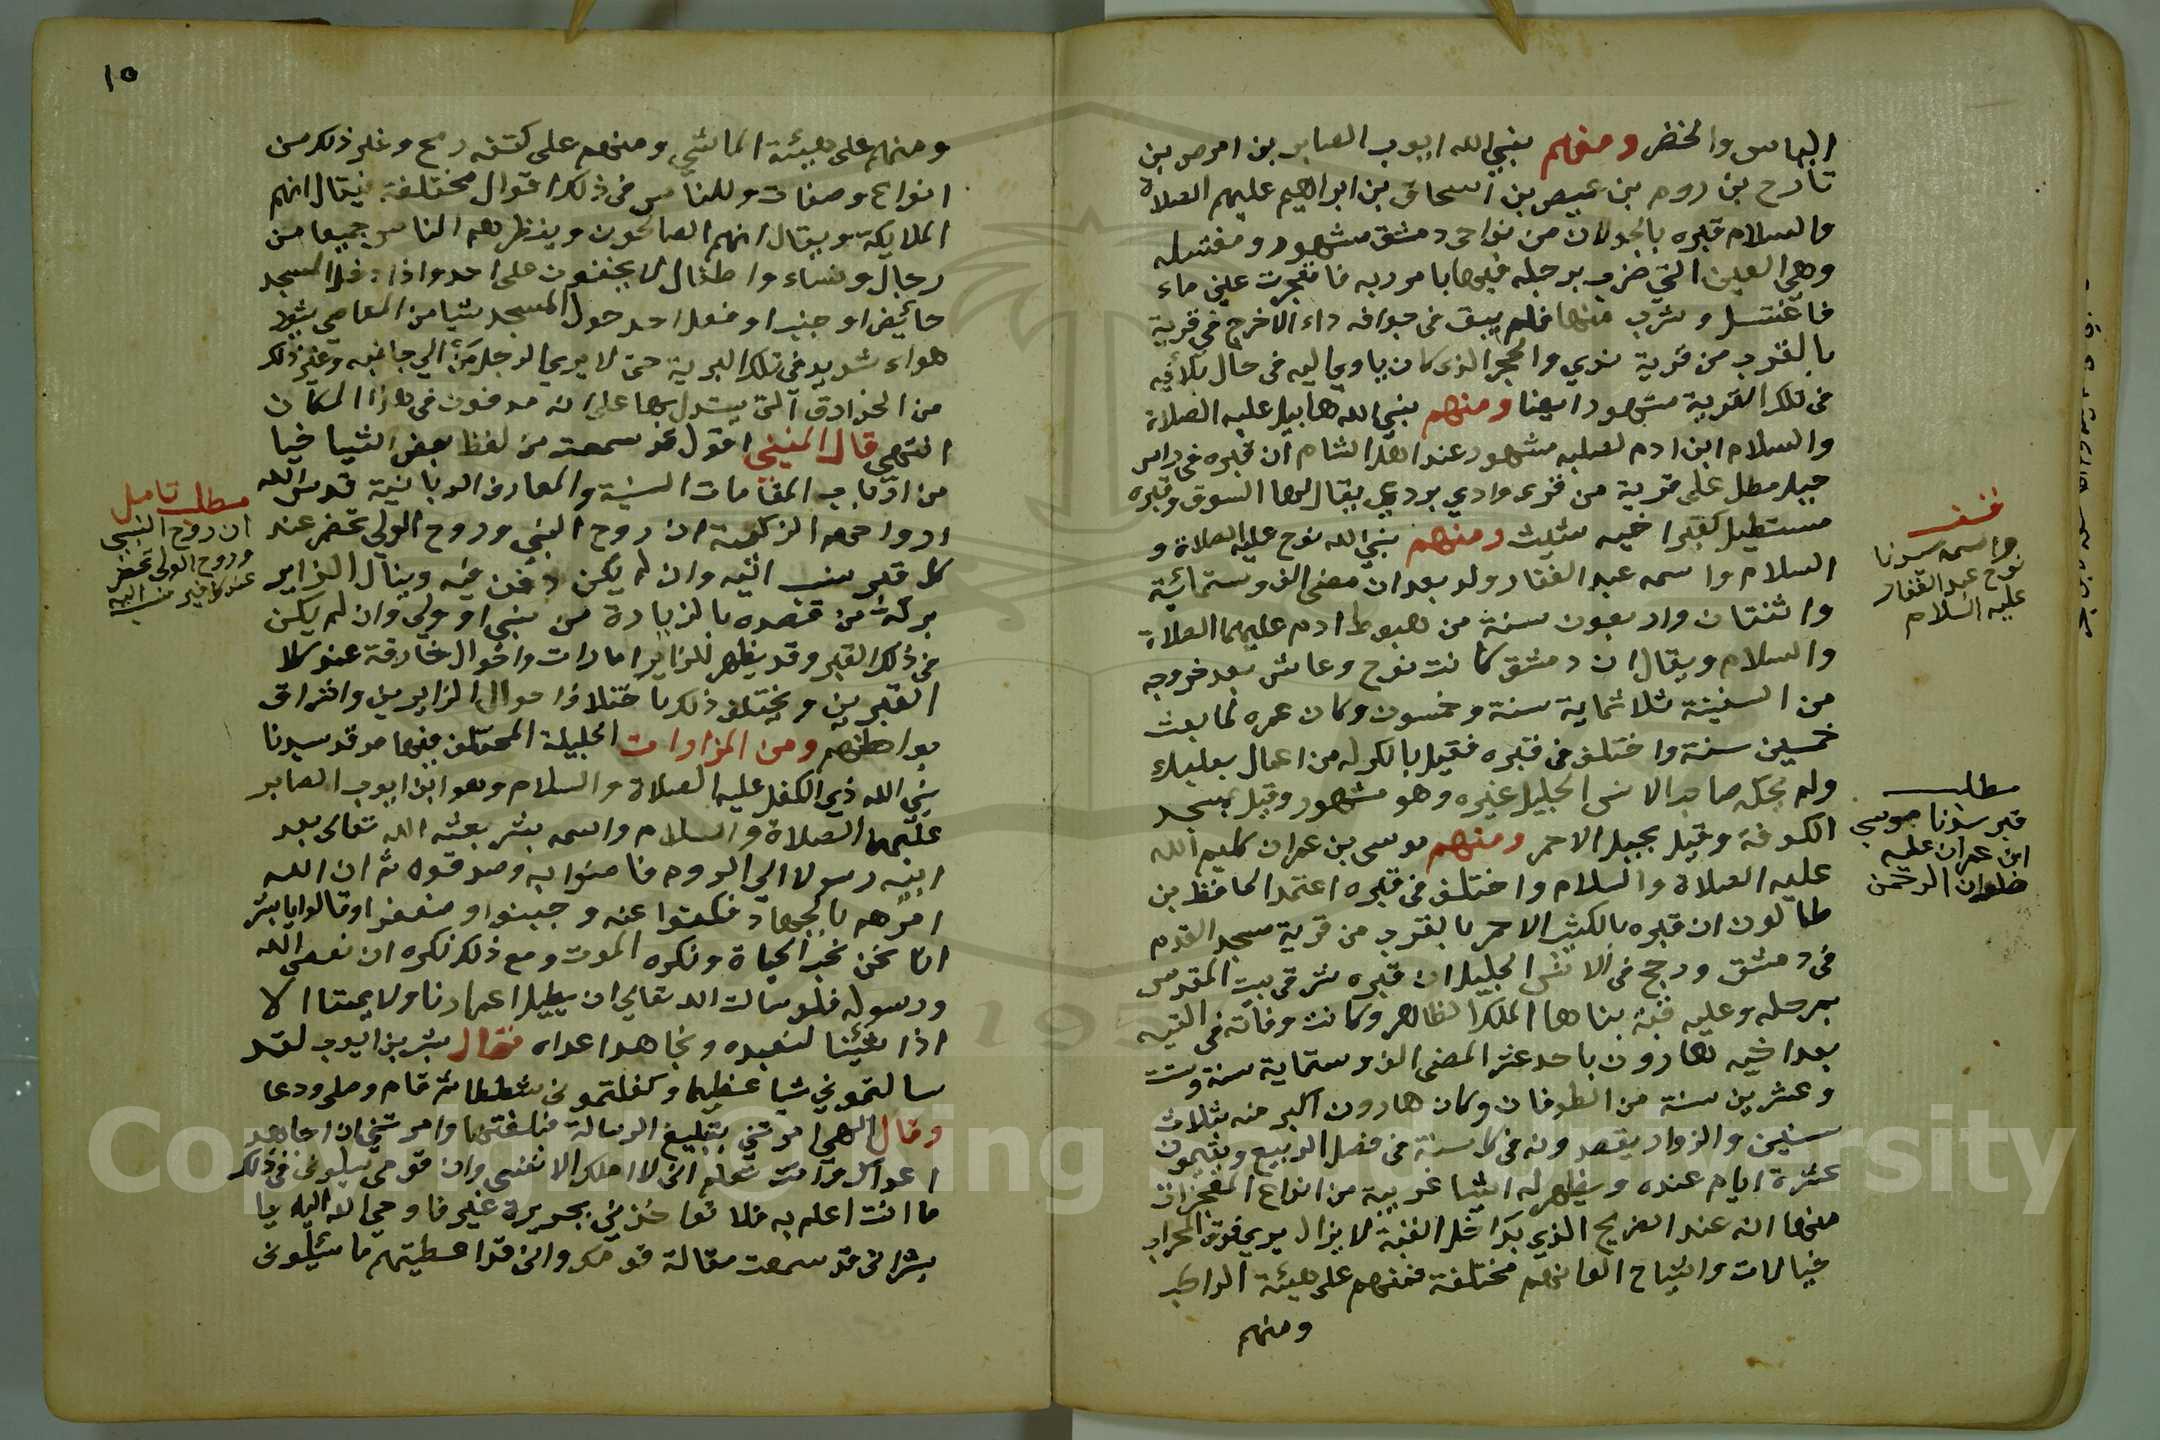 الياس والخضر ومنهم نبي الله ايوب الصابر بن اموص بن
تارح بن روم بن عيص بن اسحاق بن ابراهيم عليهم الصلاة
والسلام قبره بالجولان من نواحى دمشق مشهور ومغتسله
وهي العين التي ضرب برجله فيها بامر ربه فانفجرت عين ماء
فاغتسل وشرب منها فلم يبق فى جوافه داء الاخرج في قرية
بالقرب من قرية نوي والحجر الذى كان ياوي اليه فى حال بلائيه
فى تلك القرية مشهور ايضا ومنهم نبي الله هابيل عليه الصلاة
والسلام ابن ادم لصلبه مشهور عند اهل الشام ان قبره فى راس
جبل مطل على قرية من قرى وادي بردي يقال لها السوق وقبره
مستطيل كقبر اخيه شيث ومنهم نبي الله نوح عليه الصلاة و
السلام واسمه عبد الغفار ولد بعد ان مضى الف وستمائية
واثنتان واربعون سنة من هبوط ادم عليهما الصلاة
والسلام ويقال ان دمشق كانت نوح وعاش بعد خروجه
من السفينة ثلاثماية سنة وخمسون وكان عمره لما بعث
خمسين سنة واختلف فى قبره فقيل بالكرك من اعمال بعلبك
ولم يحك صاحب الانس الجليل غيره وهو مشهور وقيل بمسجد
الكوفة وقيل بجبل الاحمر ومنهم موسى بن عمران كليم الله
عليه الصلاة والسلام واختلف فى قبره اعتمد الحافظ بن
طالون ان قبره بالكثيب الاحمر بالقرب من قرية مسجد القدم
فى دمشق ورجح فى الانس الجليل ان قبره شرقى بيت المقدس
بمرحله وعليه قبة بناها الملك الظاهر وكانت وفاته فى التيه
بعد اخيه هارون باحد عشر المضى الف وستماية سنة وست
وعشرين سنة من الطوفان وكان هارون اكبر منه بثلاث
سنين والزوار يقصدونه فى كل سنة فى فصل الربيع ويقيمون
عشرة ايام عنده ويظهر له اشيا غريبة من انواع المعجزات
منها انه عند الضريح الذي بداخل القبة لا يزال يري فوق المحراب
خيالات واشباح الوانهم مختلفة فمنهم على هيئة الراكب
ومنهم
نف
واسمه سيدنا
نوح عبد الغفار
عليه السلام
مطلب
قبر سيدنا موسي
ابن عمران عليه
رضوان الرحمن
١٥
ومنهم على هيئة الماشي ومنهم على كتفه رمح وغير ذلك من
انواع وصفات وللناس فى ذلك اقوال مختلفة فيقال انهم
الملايكة ويقال انهم الصالحون وينظرهم الناس جميعا من
رجال ونساء واطفال لا يختفون على احد واذا دخل المسجد
حائيض او جنب او فعل احد حول المسجد شيا من المعاصي يثور
هواء شديد فى تلك البرية حتى لا يري الرجل من الي جانبه وغير ذلك
من الخوارق التى يستدل بها على انه مدفون فى هذا المكان
انتهي قال المنيني اقول قد سمعت من لفظ بعض اشياخنا
من ارباب المقامات السنية والمعارف الربانية قدس الله
ارواحهم الزكية ان روح النبي وروح الولي تحضر عند
كل قبر ينسب اليه وان لم يكن دفن فيه وينال الزاير
بركة من قصده بالزيارة من نبي او ولي وان لم يكن
فى ذلك القبر وقد يظهر للزاير امارات واحوال خارقة عند كلا
القبرين ويختلف ذلك باختلاف احوال الزايرين واشراق
بواطنهم ومن المزارات الجليلة المختلف فيها مرقد سيدنا
نبي الله ذي الكفل عليه الصلاة والسلام وهو ابن ايوب الصابر
عليهما الصلاة والسلام واسمه بشر بعثه الله تعالى بعد
ابيه رسولا الي الروم فامنوا به وصدقوه ثم ان الله
امرهم بالجهاد فكفوا عنه وجبنوا وضعفوا وقالوا يا بشر
انا نحن نحب الحياة ونكره الموت ومع ذلك نكره ان نعصي الله
ورسوله فلو سالت الله تعالي ان يطيل اعمارنا ولا يمتنا الا
اذا شئنا لنعبده ونجاهد اعداه فقال بشر بن ايوب لقد
سالتموني شيا عظيما وكلفتموني شططا ثم قام وصلى ودعا
وقال الهي امرتني بتبليغ الرسالة فبلغتها وامرتني ان اجاهد
اعداك وانت تعلم اني لا املك الا نفسي وان قومي سالوني فى ذلك
ما انت اعلم به فلا تواخذني بجريرة غيري فاوحي الله اليه يا
بشر انى قد سمعت مقالة قومك وانى قد اعطيتهم ما سئلونى
مطلب تامل
ان روح النبي
وروح الولي تحضر
عند كل قبر ينسب اليه